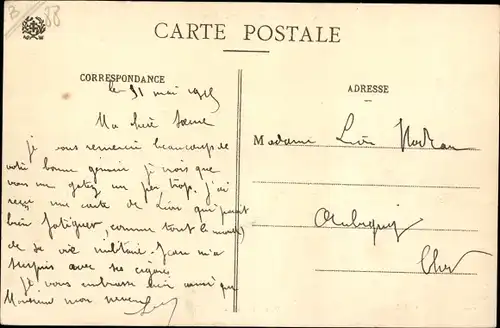 B 88
CARTE POSTALE
CORRESPONDANCE
ADRESSE
le 31 mai 1915
Ma chère
je vous remercie beaucoup de
votre bonne je crois que
vous me gâtez un peu trop. J'ai
reçu une carte de Léon qui paraît
bien fatiguer, comme tout le monde
de sa vie militaire. Jean m'a
surpris avec ses cigares
Je vous embrasse bien ainsi que
Monsieur mon neveu
Madame Léon
Aubigny
Cher